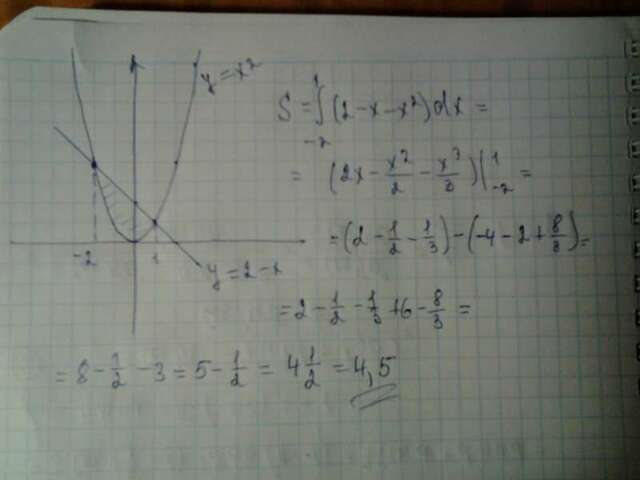 y = x²
S = ∫₋₂¹ (2 - x - x²) dx =
= (2x - x²/2 - x³/3) |₋₂¹ =
= (2 - 1/2 - 1/3) - (-4 - 2 + 8/3) =
-2 1
y = 2 - x
= 2 - 1/2 - 1/3 + 6 - 8/3 =
= 8 - 1/2 - 3 = 5 - 1/2 = 4 1/2 = 4,5